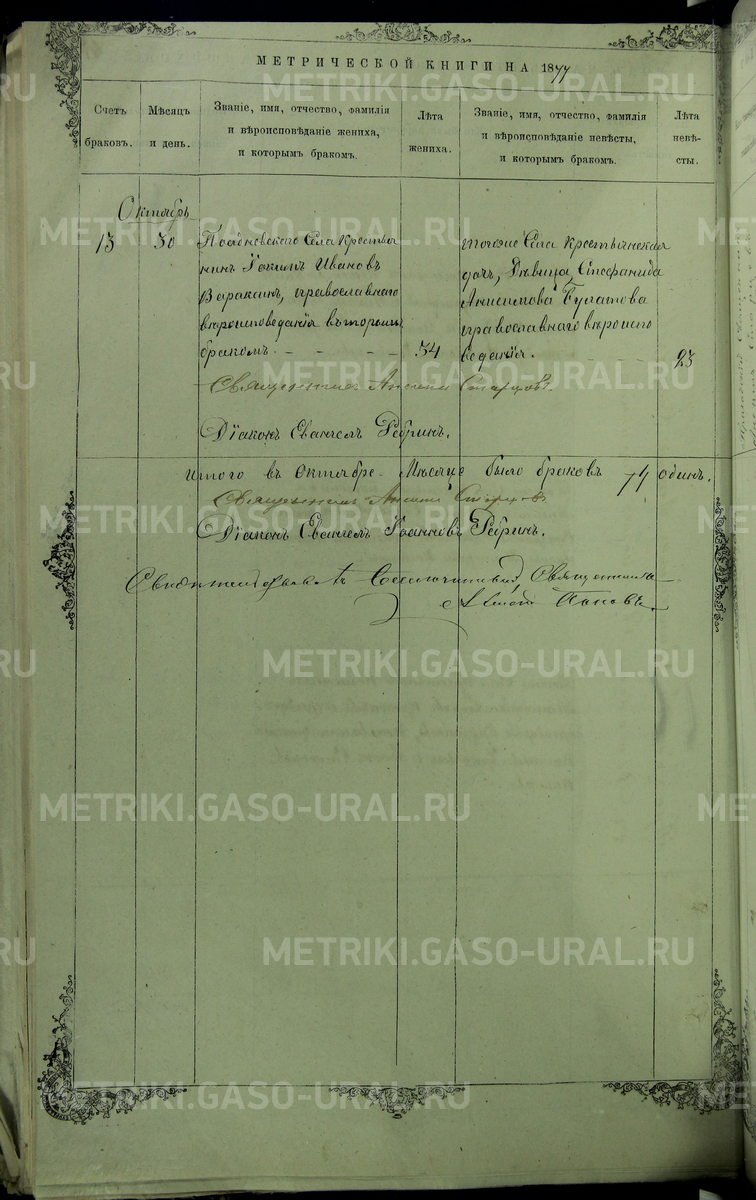 МЕТРИЧЕСКОЙ КНИГИ НА 1877
Счетъ браковъ.
Мѣсяцъ и день.
Званіе, имя, отчество, фамилія и вѣроисповѣданіе жениха, и которымъ бракомъ.
Лѣта жениха.
Званіе, имя, отчество, фамилія и вѣроисповѣданіе невѣсты, и которымъ бракомъ.
Лѣта невѣсты.
Октябрь
13
30
Села крестья
нинъ Іакимъ Ивановъ
Вараксинъ, православнаго
вѣроисповеданія вторымъ
бракомъ.
34
тогоже Села крестьянская
дочь, Дѣвица, Стефанида
Анисимова Булатова
православнаго вѣроиспо
веданія.
23
Священникъ Старцовъ
Діаконъ Евангелъ Ребринъ.
Итого въ Октябре Мѣсяце было браковъ одинъ.
Священникъ Старцовъ
Діаконъ Евангелъ Іоанновъ Ребринъ.
Священникъ
Поповъ
METRIKI.GASO-URAL.RU